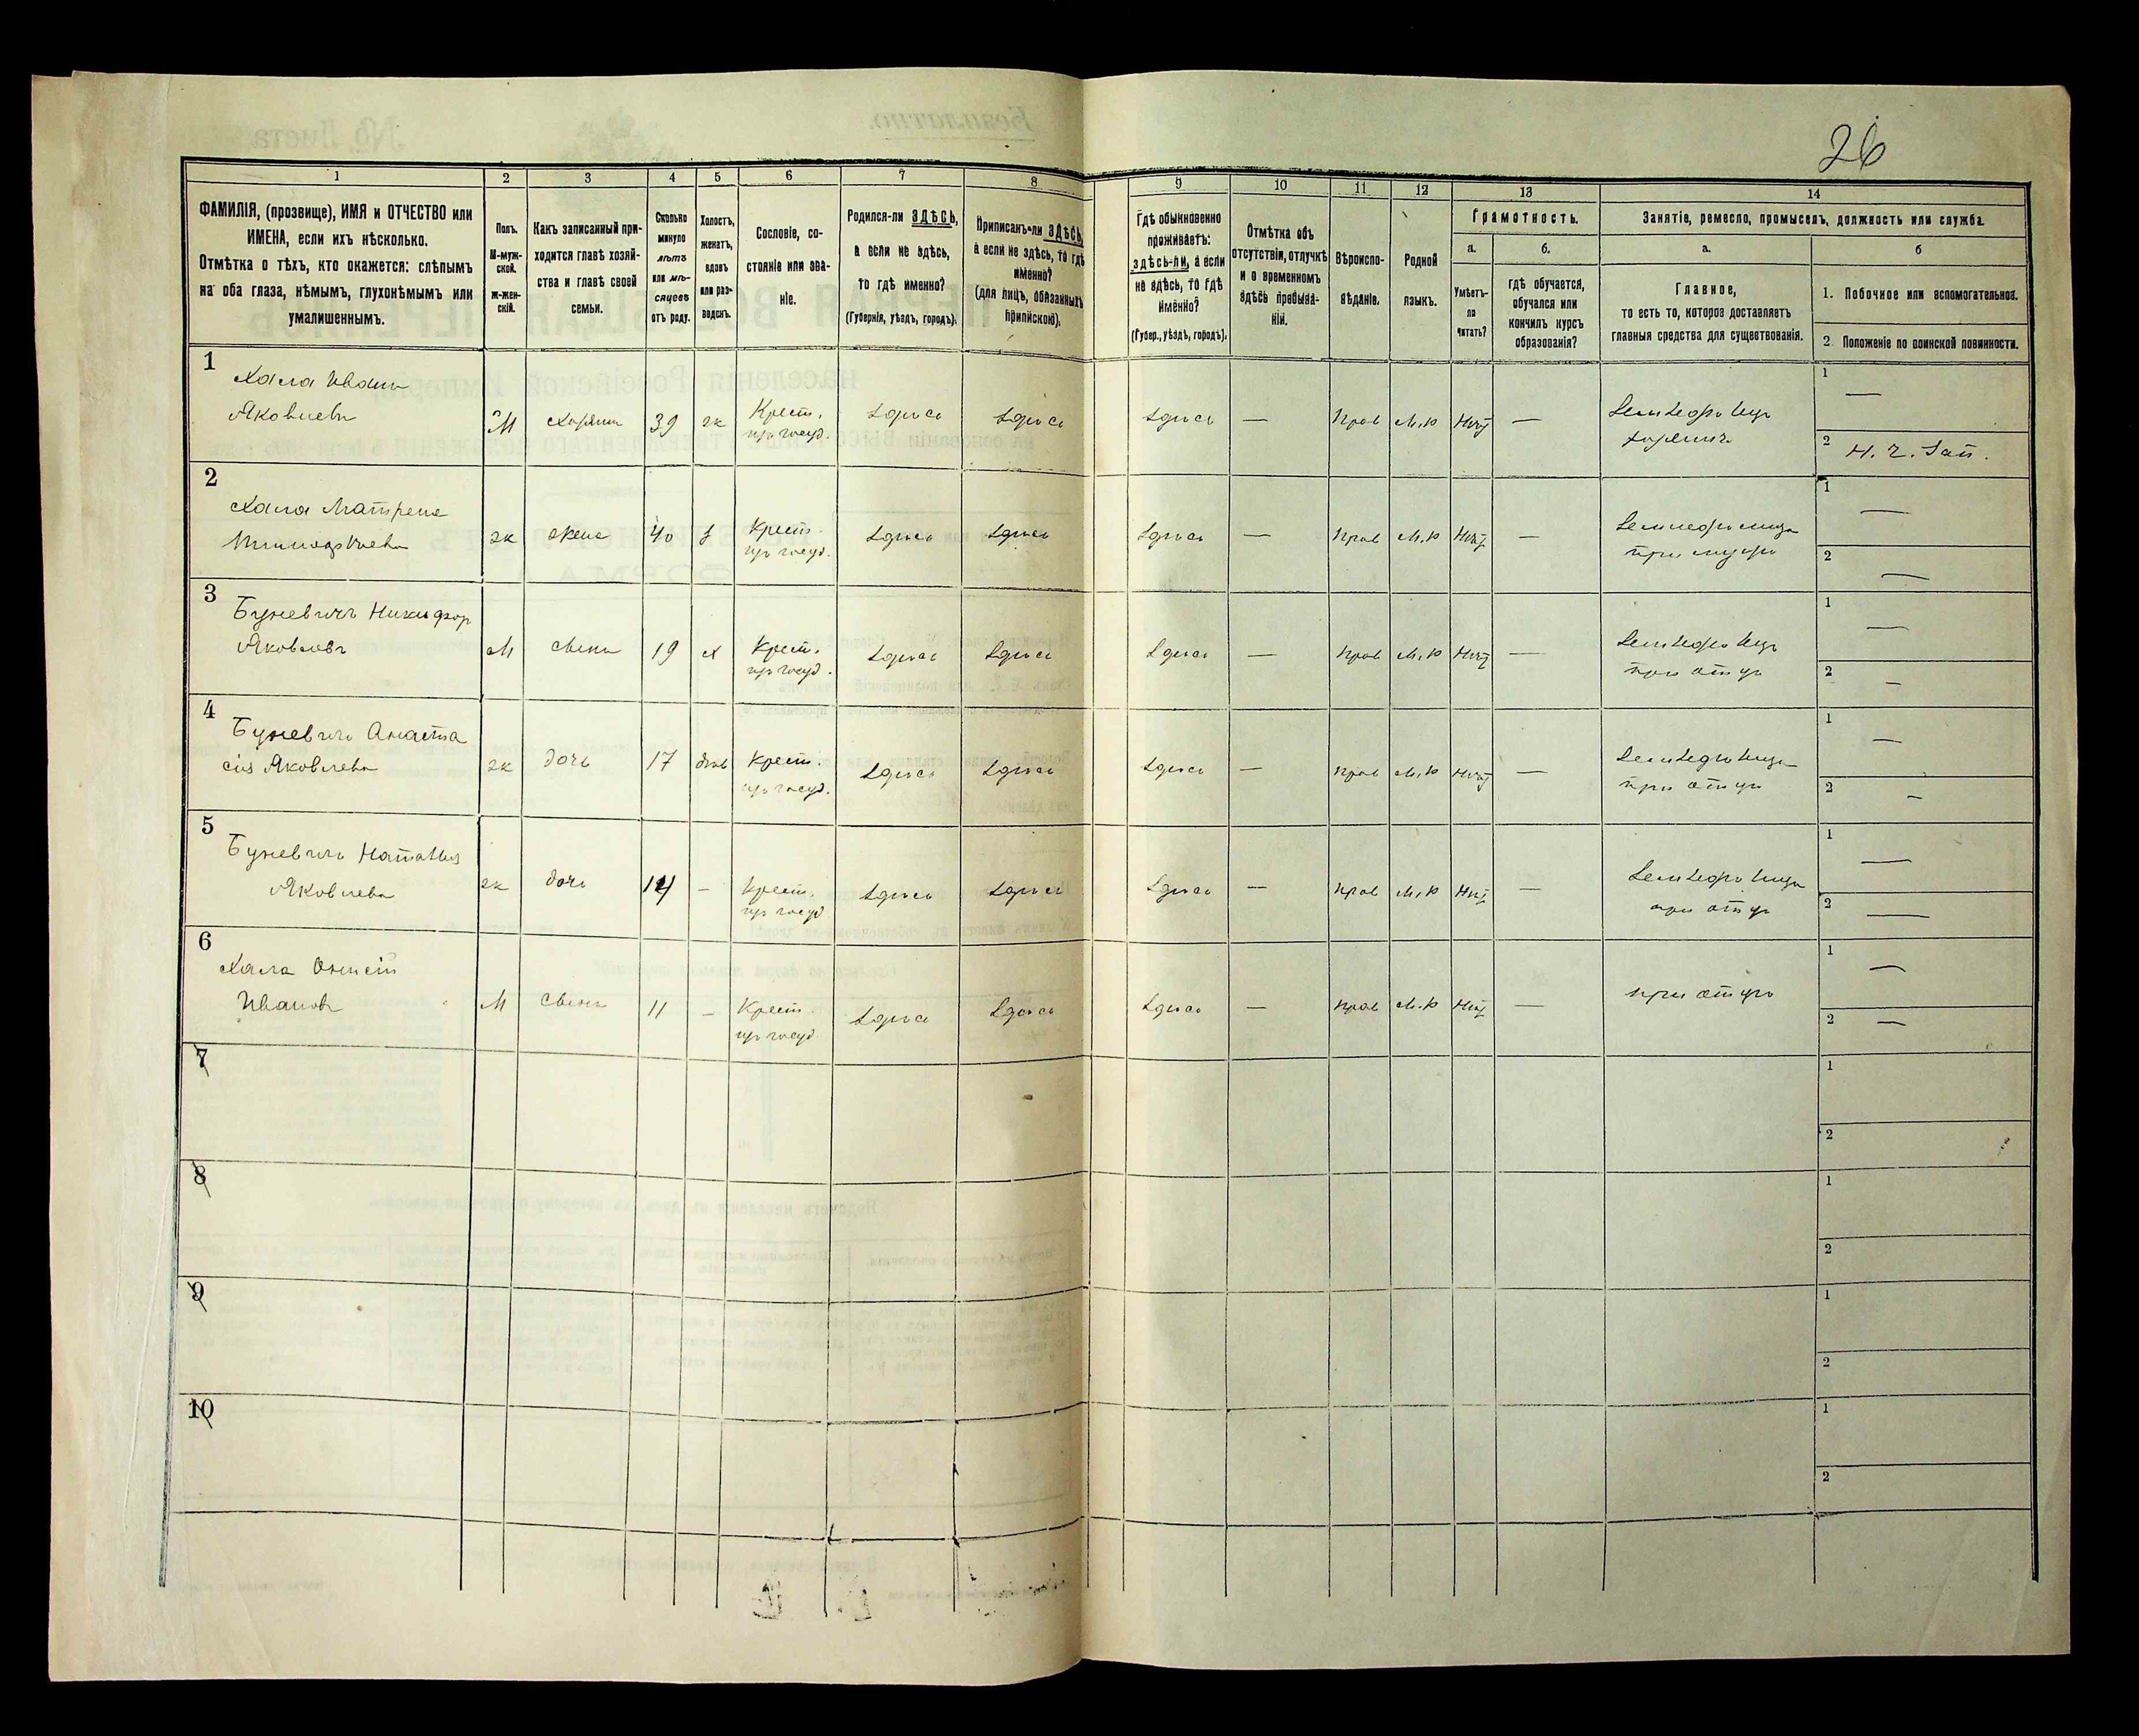 26
1 2 3 4 5 6 7 8 9 10 11 12 13 14
ФАМИЛІЯ, (прозвище), ИМЯ и ОТЧЕСТВО или
ИМЕНА, если ихъ нѣсколько.
Отмѣтка о тѣхъ, кто окажется: слѣпымъ
на оба глаза, нѣмымъ, глухонѣмымъ или
умалишеннымъ.
Полъ.
М-муж-
ской.
ж-жен-
скій.
Какъ записанный при-
ходится главѣ хозяй-
ства и главѣ своей
семьи.
Сколько
минуло
лѣтъ
или мѣ-
сяцевъ
отъ роду.
Холостъ,
женатъ,
вдовъ
или раз-
веденъ.
Сословіе, со-
стояніе или зва-
ніе.
Родился-ли ЗДѢСЬ,
а если не здѣсь,
то гдѣ именно?
(Губернія, уѣздъ, городъ).
Приписанъ-ли ЗДѢСЬ,
а если не здѣсь, то гдѣ
именно?
(для лицъ, обязанныхъ
припискою).
Гдѣ обыкновенно
проживаетъ:
здѣсь-ли, а если
не здѣсь, то гдѣ
именно?
(Губер., уѣздъ, городъ).
Отмѣтка объ
отсутствіи, отлучкѣ
и о временномъ
здѣсь пребыва-
ніи.
Вѣроиспо-
вѣданіе.
Родной
языкъ.
Грамотность.
а.
Умѣетъ-
ли
читать?
б.
гдѣ обучается,
обучался или
кончилъ курсъ
образованія?
Занятіе, ремесло, промыселъ, должность или служба.
а.
Главное,
то есть то, которое доставляетъ
главныя средства для существованія.
б
1. Побочное или вспомогательное.
2. Положеніе по воинской повинности.
1
Хала Иванъ
Яковлевъ
М
хозяинъ
39
ж
Крест.
изъ госуд.
здѣсь
здѣсь
здѣсь
—
прав
М.р
Нѣт
—
Земледѣлецъ
хозяинъ
1 —
2 Н. ч. Зап.
2
Хала Матрена
ж
жена
40
з
Крест.
изъ госуд.
здѣсь
здѣсь
здѣсь
—
прав
М.р
Нѣт
Земледѣлица
при мужѣ
1 —
2 —
3
Буневичъ Никифор
Яковлевъ
М
19
х
Крест.
изъ госуд.
здѣсь
здѣсь
здѣсь
—
прав
М.р
Нѣт
—
Земледѣлецъ
при отцѣ
1 —
2 —
4
Буневичъ Анаста
сія Яковлева
ж
дочь
17
дѣв
Крест.
изъ госуд.
здѣсь
здѣсь
здѣсь
—
прав
М.р
Нѣт
—
Земледѣлица
при отцѣ
1 —
2 —
5
Буневичъ Наталія
Яковлева
ж
дочь
14
–
Крест.
изъ госуд
здѣсь
здѣсь
здѣсь
—
прав
М.р
Нѣт
—
Земледѣлица
при отцѣ
1 —
2 —
6
Хала
Ивановъ
М
сынъ
11
–
Крест.
изъ госуд
здѣсь
здѣсь
здѣсь
—
прав
М.р
Нѣт
—
при отцѣ
1 —
2 —
7
1
2
8
1
2
9
1
2
10
1
2